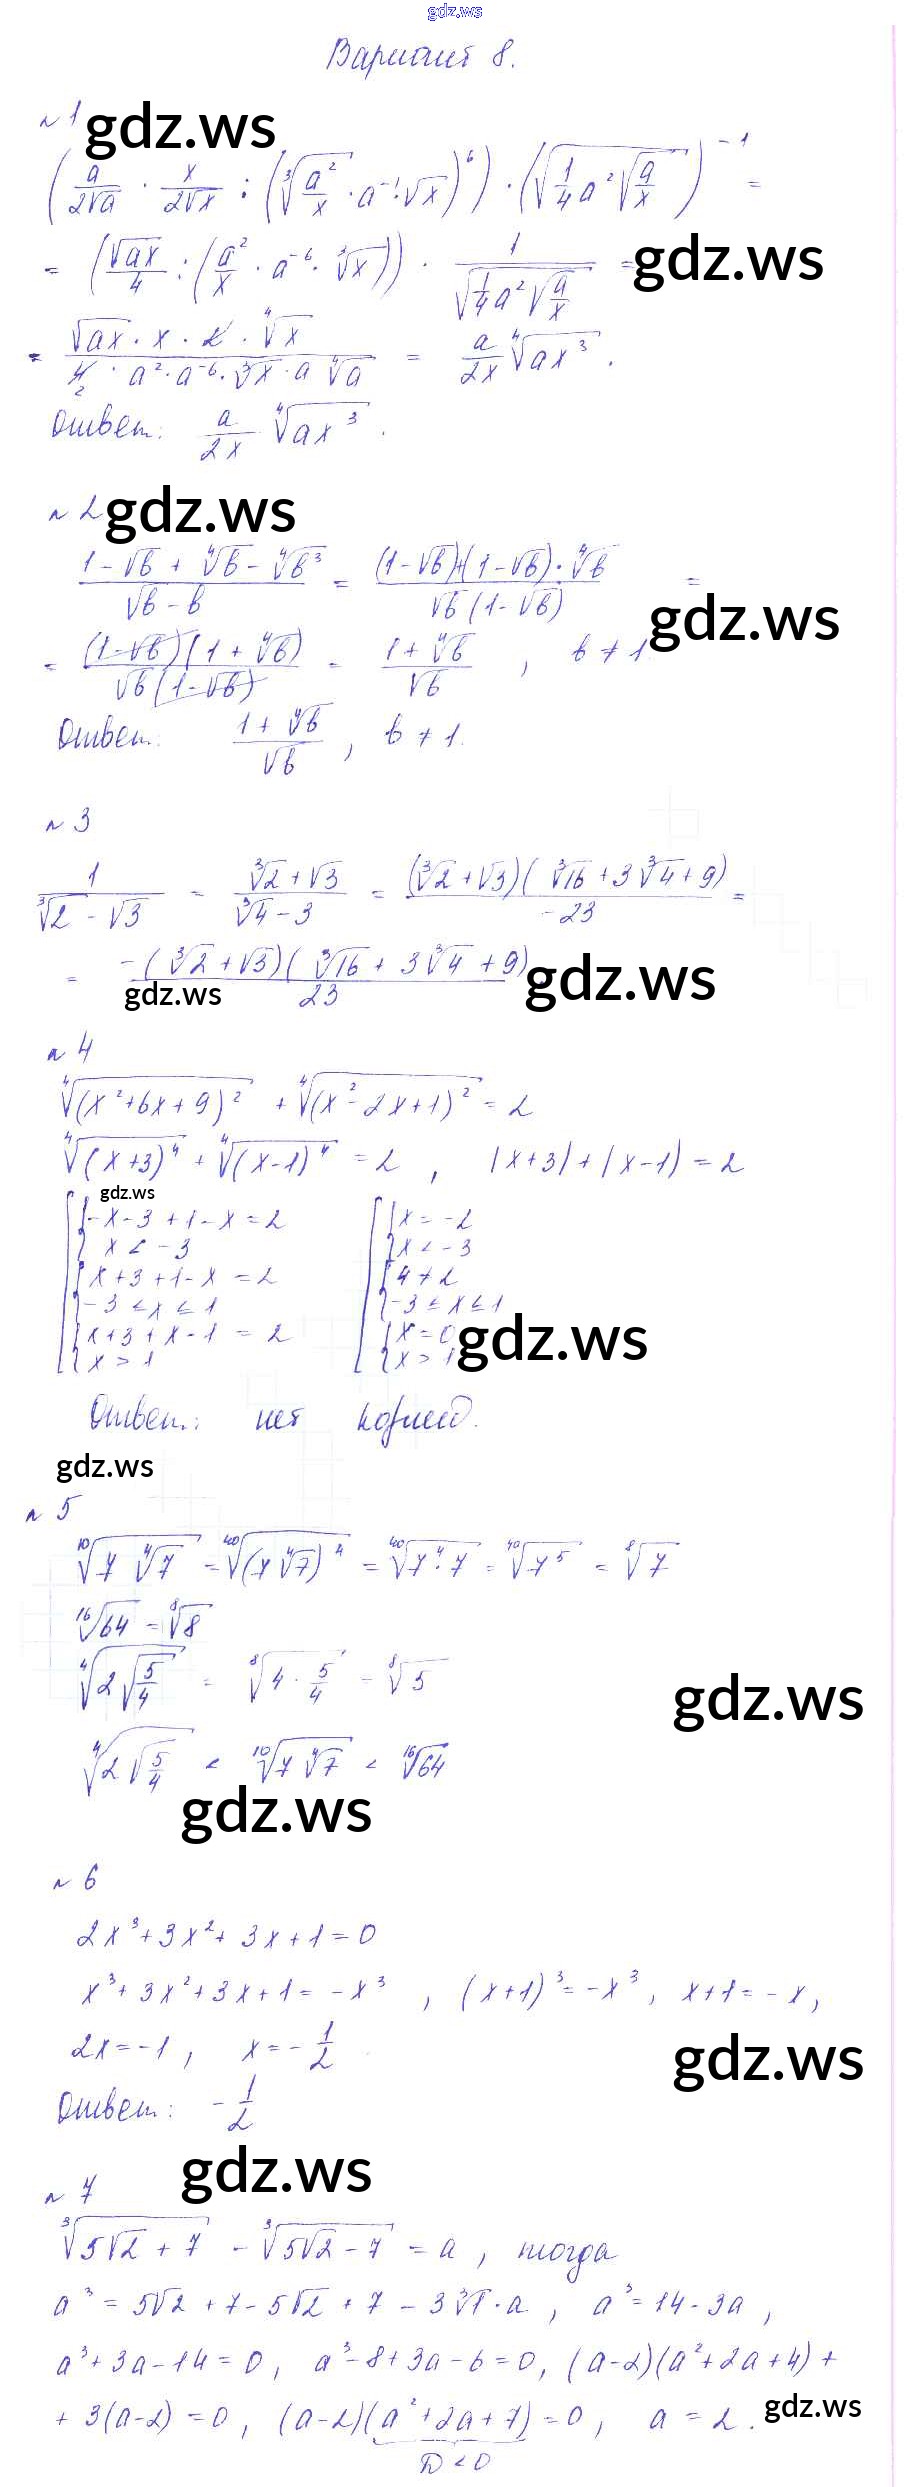 gdz.ws
Вариант 8.
№ 1 gdz.ws
(a/(2√a) · x/(2√x) : (∛(a²/x) · a⁻¹ · √x)⁶) · (√(1/4 a² √(a/x)))⁻¹ =
= (√(ax)/4 : (a²/x · a⁻⁶ · ∛x)) · 1/√(1/4 a² √(a/x)) = gdz.ws
= (√(ax) · x · 2 · ∜x)/(4 · a² · a⁻⁶ · ∛x · a ∜a) = a/(2x) ∜(ax³).
Ответ: a/(2x) ∜(ax³).
№ 2 gdz.ws
(1-√b + ∜b - ∜b³)/(√b - b) = ((1-√b)+(1-√b)·∜b)/(√b(1-√b)) =
gdz.ws
= ((1-√b)(1+∜b))/(√b(1-√b)) = (1+∜b)/√b , b ≠ 1.
Ответ: (1+∜b)/√b , b ≠ 1.
№ 3
1/(∛2 - √3) = (∛2+√3)/(∛4-3) = ((∛2+√3)(∛16+3∛4+9))/(-23) =
= -(∛2+√3)(∛16+3∛4+9)/23 gdz.ws
gdz.ws
№ 4
∜((x²+6x+9)²) + ∜((x²-2x+1)²) = 2
∜((x+3)⁴) + ∜((x-1)⁴) = 2 , |x+3|+|x-1| = 2
gdz.ws
-x-3+1-x=2 x=-2
x < -3 x < -3
x+3+1-x=2 4≠2
-3 ≤ x ≤ 1 -3 ≤ x ≤ 1
x+3+x-1=2 x=0 gdz.ws
x > 1 x > 1
Ответ: нет корней.
gdz.ws
№ 5
¹⁰√(7 ∜7) = ⁴⁰√((7∜7)⁴) = ⁴⁰√(7⁴·7) = ⁴⁰√(7⁵) = ⁸√7
¹⁶√64 = ⁸√8
∜(2√(5/4)) = ⁸√(4·5/4) = ⁸√5
gdz.ws
∜(2√(5/4)) < ¹⁰√(7∜7) < ¹⁶√64
gdz.ws
№ 6
2x³+3x²+3x+1=0
x³+3x²+3x+1=-x³ , (x+1)³=-x³, x+1=-x,
2x=-1, x=-1/2
gdz.ws
Ответ: -1/2
gdz.ws
№ 7
∛(5√2+7) - ∛(5√2-7) = a, тогда
a³ = 5√2+7-5√2+7-3∛1·a , a³=14-3a,
a³+3a-14=0, a³-8+3a-6=0, (a-2)(a²+2a+4)+
gdz.ws
+3(a-2)=0, (a-2)(a²+2a+7)=0, a=2.
D<0